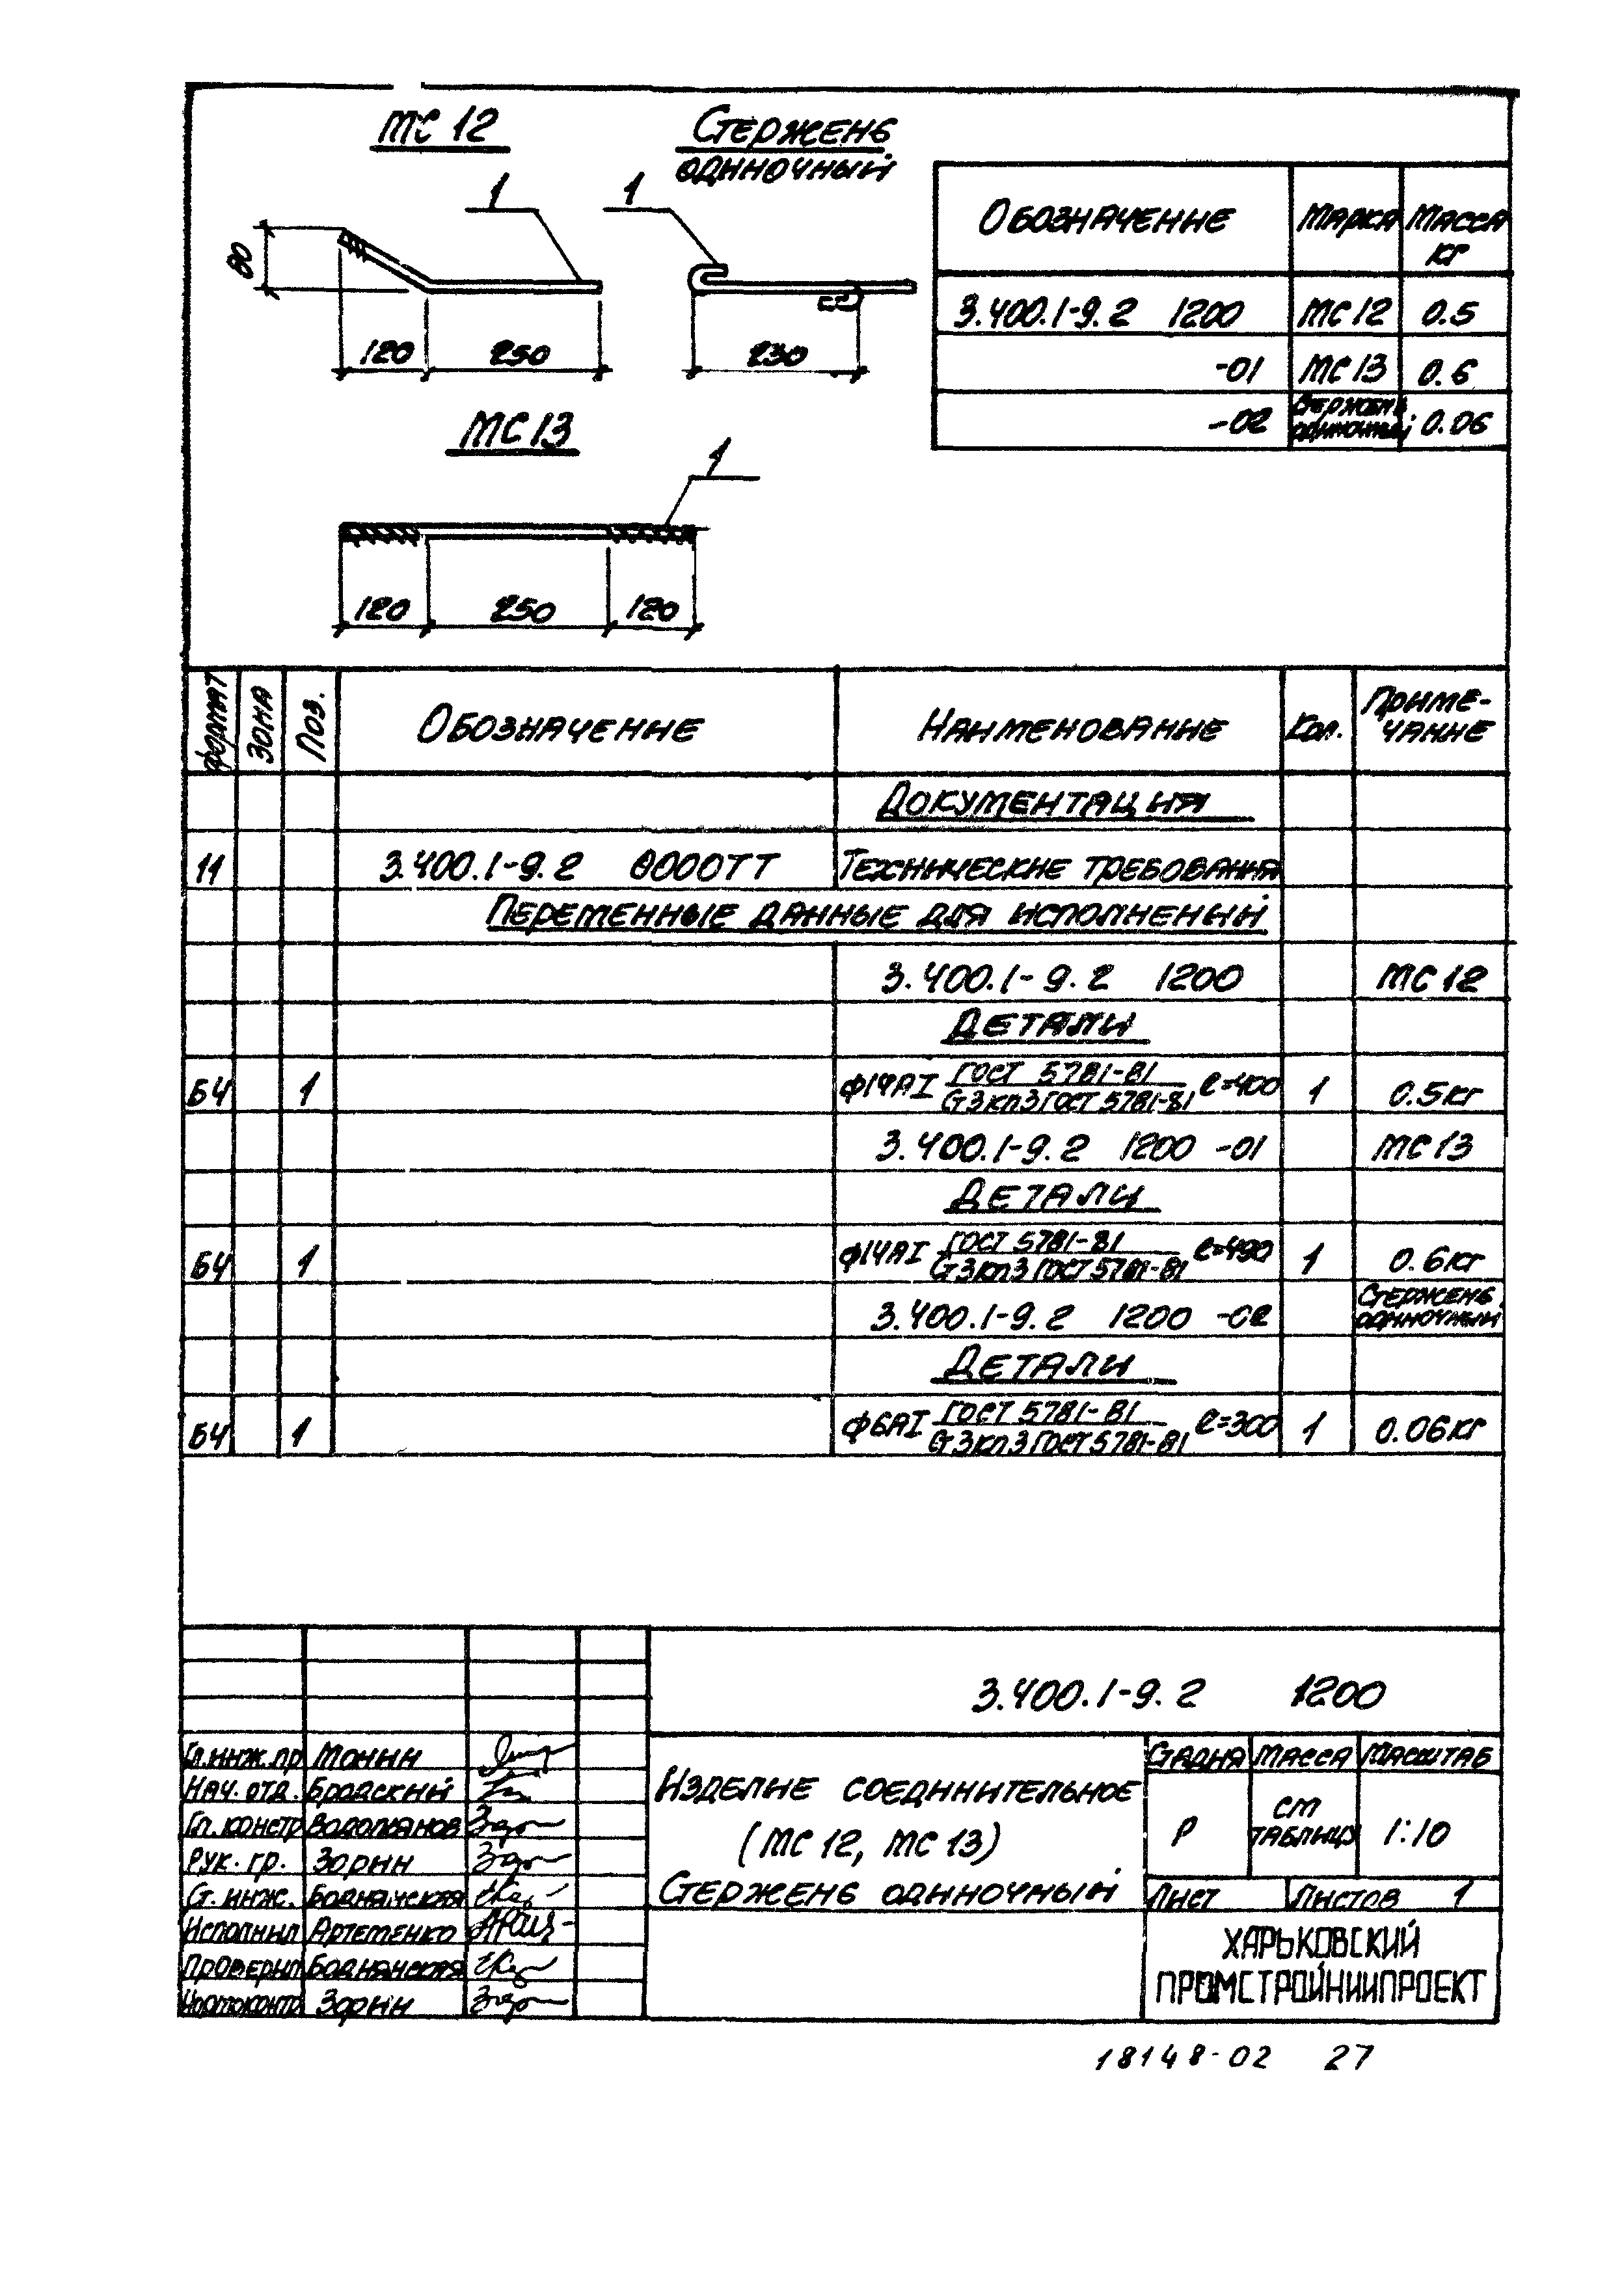 МС 12
Стержень
одиночный
1
1
80
120
250
230
Обозначение Марка Масса
кг
3.400.1-9.2 1200 МС 12 0.5
-01 МС 13 0.6
-02 Стержень
одиночный 0.06
МС 13
1
120 250 120
Формат Зона Поз. Обозначение Наименование Кол. Приме-
чание
Документация
11 3.400.1-9.2 0000ТТ Технические требования
Переменные данные для исполнений
3.400.1-9.2 1200 МС 12
Детали
Б4 1 ф14АI ГОСТ 5781-81 ℓ=400 1 0.5кг
Ст3кп3 ГОСТ 5781-81
3.400.1-9.2 1200 -01 МС 13
Детали
Б4 1 ф14АI ГОСТ 5781-81 ℓ=490 1 0.6кг
Ст3кп3 ГОСТ 5781-81
3.400.1-9.2 1200 -02 Стержень
одиночный
Детали
Б4 1 ф6АI ГОСТ 5781-81 ℓ=300 1 0.06кг
Ст3кп3 ГОСТ 5781-81
3.400.1-9.2 1200
Гл.инж.пр Монин
Нач. отд. Бродский
Гл. констр Водопьянов
Рук. гр. Зорин
Ст. инж. Боднянская
Исполнил Артеменко
Проверил Боднянская
Нормоконтр Зорин
Изделие соединительное
(МС 12, МС 13)
Стержень одиночный
Стадия Масса Масштаб
Р см
таблицу 1:10
Лист Листов 1
ХАРЬКОВСКИЙ
ПРОМСТРОЙНИИПРОЕКТ
18148-02 27